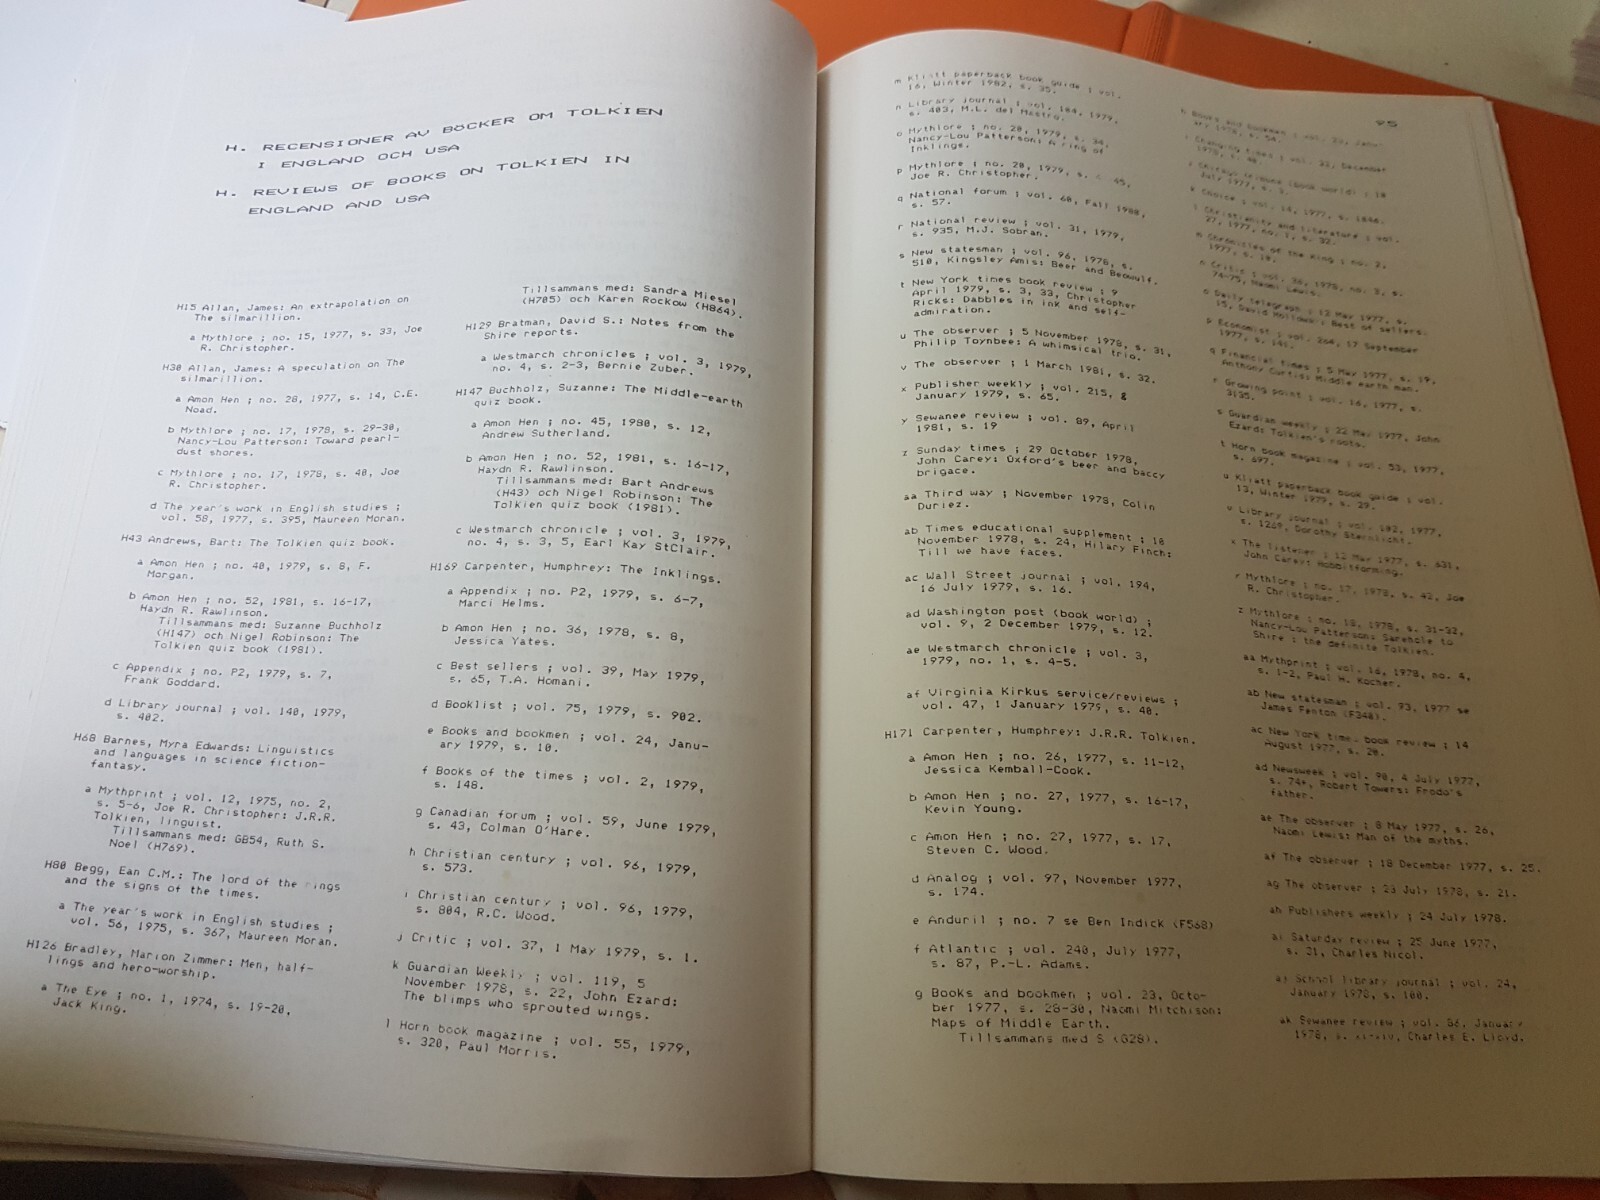 H. RECENSIONER AV BÖCKER OM TOLKIEN
I ENGLAND OCH USA
H. REVIEWS OF BOOKS ON TOLKIEN IN
ENGLAND AND USA
H15 Allan, James: An extrapolation on
The silmarillion.
a Mythlore ; no. 15, 1977, s. 33, Joe
R. Christopher.
H30 Allan, James: A speculation on The
silmarillion.
a Amon Hen ; no. 28, 1977, s. 14, C.E.
Noad.
b Mythlore ; no. 17, 1978, s. 29-30,
Nancy-Lou Patterson: Toward pearl-
dust shores.
c Mythlore ; no. 17, 1978, s. 40, Joe
R. Christopher.
d The year's work in English studies ;
vol. 58, 1977, s. 395, Maureen Moran.
H43 Andrews, Bart: The Tolkien quiz book.
a Amon Hen ; no. 40, 1979, s. 8, F.
Morgan.
b Amon Hen ; no. 52, 1981, s. 16-17,
Haydn R. Rawlinson.
Tillsammans med: Suzanne Buchholz
(H147) och Nigel Robinson: The
Tolkien quiz book (1981).
c Appendix ; no. P2, 1979, s. 7,
Frank Goddard.
d Library journal ; vol. 140, 1979,
s. 402.
H68 Barnes, Myra Edwards: Linguistics
and languages in science fiction-
fantasy.
a Mythprint ; vol. 12, 1975, no. 2,
s. 5-6, Joe R. Christopher: J.R.R.
Tolkien, linguist.
Tillsammans med: GB54, Ruth S.
Noel (H769).
H80 Begg, Ean C.M.: The lord of the rings
and the signs of the times.
a The year's work in English studies ;
vol. 56, 1975, s. 367, Maureen Moran.
H126 Bradley, Marion Zimmer: Men, half-
lings and hero-worship.
a The Eye ; no. 1, 1974, s. 19-20,
Jack King.
Tillsammans med: Sandra Miesel
(H705) och Karen Rockow (H864).
H129 Bratman, David S.: Notes from the
Shire reports.
a Westmarch chronicles ; vol. 3, 1979,
no. 4, s. 2-3, Bernie Zuber.
H147 Buchholz, Suzanne: The Middle-earth
quiz book.
a Amon Hen ; no. 45, 1980, s. 12,
Andrew Sutherland.
b Amon Hen ; no. 52, 1981, s. 16-17,
Haydn R. Rawlinson.
Tillsammans med: Bart Andrews
(H43) och Nigel Robinson: The
Tolkien quiz book (1981).
c Westmarch chronicle ; vol. 3, 1979,
no. 4, s. 3, 5, Earl Kay StClair.
H169 Carpenter, Humphrey: The Inklings.
a Appendix ; no. P2, 1979, s. 6-7,
Marci Helms.
b Amon Hen ; no. 36, 1978, s. 8,
Jessica Yates.
c Best sellers ; vol. 39, May 1979,
s. 65, T.A. Homani.
d Booklist ; vol. 75, 1979, s. 902.
e Books and bookmen ; vol. 24, Janu-
ary 1979, s. 10.
f Books of the times ; vol. 2, 1979,
s. 148.
g Canadian forum ; vol. 59, June 1979,
s. 43, Colman O'Hare.
h Christian century ; vol. 96, 1979,
s. 573.
i Christian century ; vol. 96, 1979,
s. 804, R.C. Wood.
j Critic ; vol. 37, 1 May 1979, s. 1.
k Guardian Weekly ; vol. 119, 5
November 1978, s. 22, John Ezard:
The blimps who sprouted wings.
l Horn book magazine ; vol. 55, 1979,
s. 320, Paul Morris.
m Kliatt paperback book guide ; vol.
16, Winter 1982, s. 35.
n Library journal ; vol. 104, 1979,
s. 403, M.L. del Mastro.
o Mythlore ; no. 20, 1979, s. 34,
Nancy-Lou Patterson: A ring of
Inklings.
p Mythlore ; no. 20, 1979, s. 45,
Joe R. Christopher.
q National forum ; vol. 60, Fall 1980,
s. 57.
r National review ; vol. 31, 1979,
s. 935, M.J. Sobran.
s New statesman ; vol. 96, 1978, s.
510, Kingsley Amis: Beer and Beowulf.
t New York times book review ; 9
April 1979, s. 3, 33, Christopher
Ricks: Dabbles in ink and self-
admiration.
u The observer ; 5 November 1978, s. 31,
Philip Toynbee: A whimsical trio.
v The observer ; 1 March 1981, s. 32.
x Publisher weekly ; vol. 215, 8
January 1979, s. 65.
y Sewanee review ; vol. 89, April
1981, s. 19
z Sunday times ; 29 October 1978,
John Carey: Oxford's beer and baccy
brigace.
aa Third way ; November 1978, Colin
Duriez.
ab Times educational supplement ; 10
November 1978, s. 24, Hilary Finch:
Till we have faces.
ac Wall Street journal ; vol. 194,
16 July 1979, s. 16.
ad Washington post (book world) ;
vol. 9, 2 December 1979, s. 12.
ae Westmarch chronicle ; vol. 3,
1979, no. 1, s. 4-5.
af Virginia Kirkus service/reviews ;
vol. 47, 1 January 1979, s. 40.
H171 Carpenter, Humphrey: J.R.R. Tolkien.
a Amon Hen ; no. 26, 1977, s. 11-12,
Jessica Kemball-Cook.
b Amon Hen ; no. 27, 1977, s. 16-17,
Kevin Young.
c Amon Hen ; no. 27, 1977, s. 17,
Steven C. Wood.
d Analog ; vol. 97, November 1977,
s. 174.
e Anduril ; no. 7 se Ben Indick (F568)
f Atlantic ; vol. 240, July 1977,
s. 87, P.-L. Adams.
g Books and bookmen ; vol. 23, Octo-
ber 1977, s. 28-30, Naomi Mitchison:
Maps of Middle Earth.
Tillsammans med S (G28).
95
h Books and bookmen ; vol. 23, Janu-
ary 1978, s. 54.
i Changing times ; vol. 32, December
1978, s. 40.
j Chicago tribune (book world) ; 10
July 1977, s. 2.
k Choice ; vol. 14, 1977, s. 1044.
l Christianity and literature ; vol.
27, 1977, no. 1, s. 32.
m Chronicles of the King ; no. 2,
1977, s. 18.
n Critic ; vol. 36, 1978, no. 3, s.
74-75, Naomi Lewis.
o Daily telegraph ; 12 May 1977, s.
15, David Holloway: Best of sellers.
p Economist ; vol. 264, 17 September
1977, s. 141.
q Financial times ; 5 May 1977, s. 19,
Anthony Curtis: Middle earth man.
r Growing point ; vol. 16, 1977, s.
3135.
s Guardian weekly ; 22 May 1977, John
Ezard: Tolkien's roots.
t Horn book magazine ; vol. 53, 1977,
s. 697.
u Kliatt paperback book guide ; vol.
13, Winter 1979, s. 29.
v Library journal ; vol. 102, 1977,
s. 1269, Dorothy Sternlicht.
x The listener ; 12 May 1977, s. 631,
John Carey: Hobbitforming.
y Mythlore ; no. 17, 1978, s. 42, Joe
R. Christopher.
z Mythlore ; no. 18, 1978, s. 31-32,
Nancy-Lou Patterson: Sarehole to
Shire : the definite Tolkien.
aa Mythprint ; vol. 16, 1978, no. 4,
s. 1-2, Paul H. Kocher.
ab New statesman ; vol. 93, 1977 se
James Fenton (F340).
ac New York time. book review ; 14
August 1977, s. 20.
ad Newsweek ; vol. 90, 4 July 1977,
s. 74+, Robert Towers: Frodo's
father.
ae The observer ; 8 May 1977, s. 26,
Naomi Lewis: Man of the myths.
af The observer ; 18 December 1977, s. 25.
ag The observer ; 23 July 1978, s. 21.
ah Publishers weekly ; 24 July 1978.
ai Saturday review ; 25 June 1977,
s. 31, Charles Nicol.
aj School library journal ; vol. 24,
January 1978, s. 100.
ak Sewanee review ; vol. 86, January
1978, s. Charles E. Lloyd.